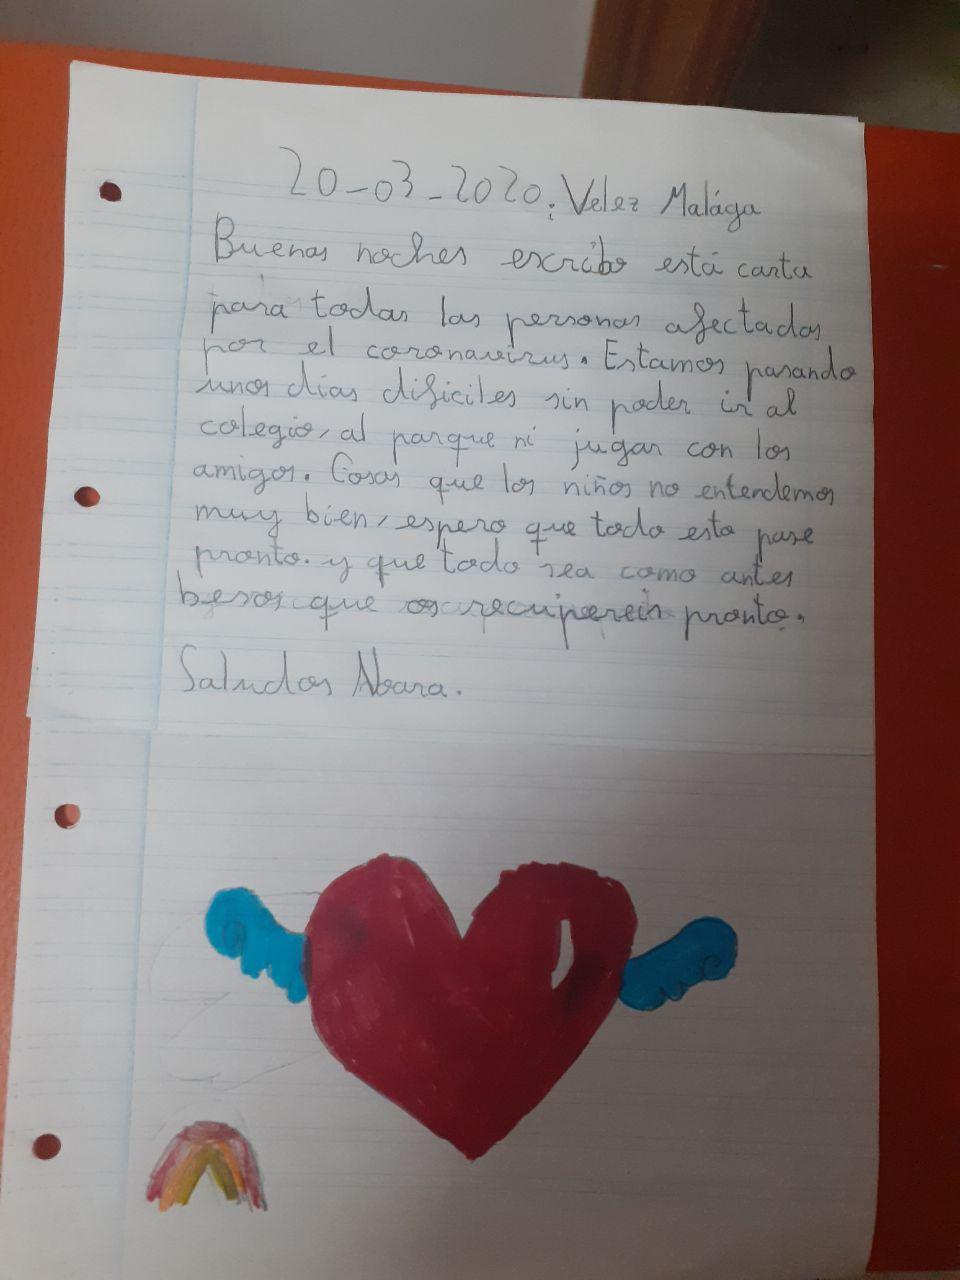 20-03-2020: Velez Malága
Buenas noches escribo está carta
para todas las personas afectadas
por el coronavirus. Estamos pasando
unos días dificiles sin poder ir al
colegio, al parque ni jugar con los
amigos. Cosas que los niños no entendemos
muy bien, espero que todo esto pase
pronto. y que todo sea como antes
besos que os recupereis pronto.
Saludos Noara.